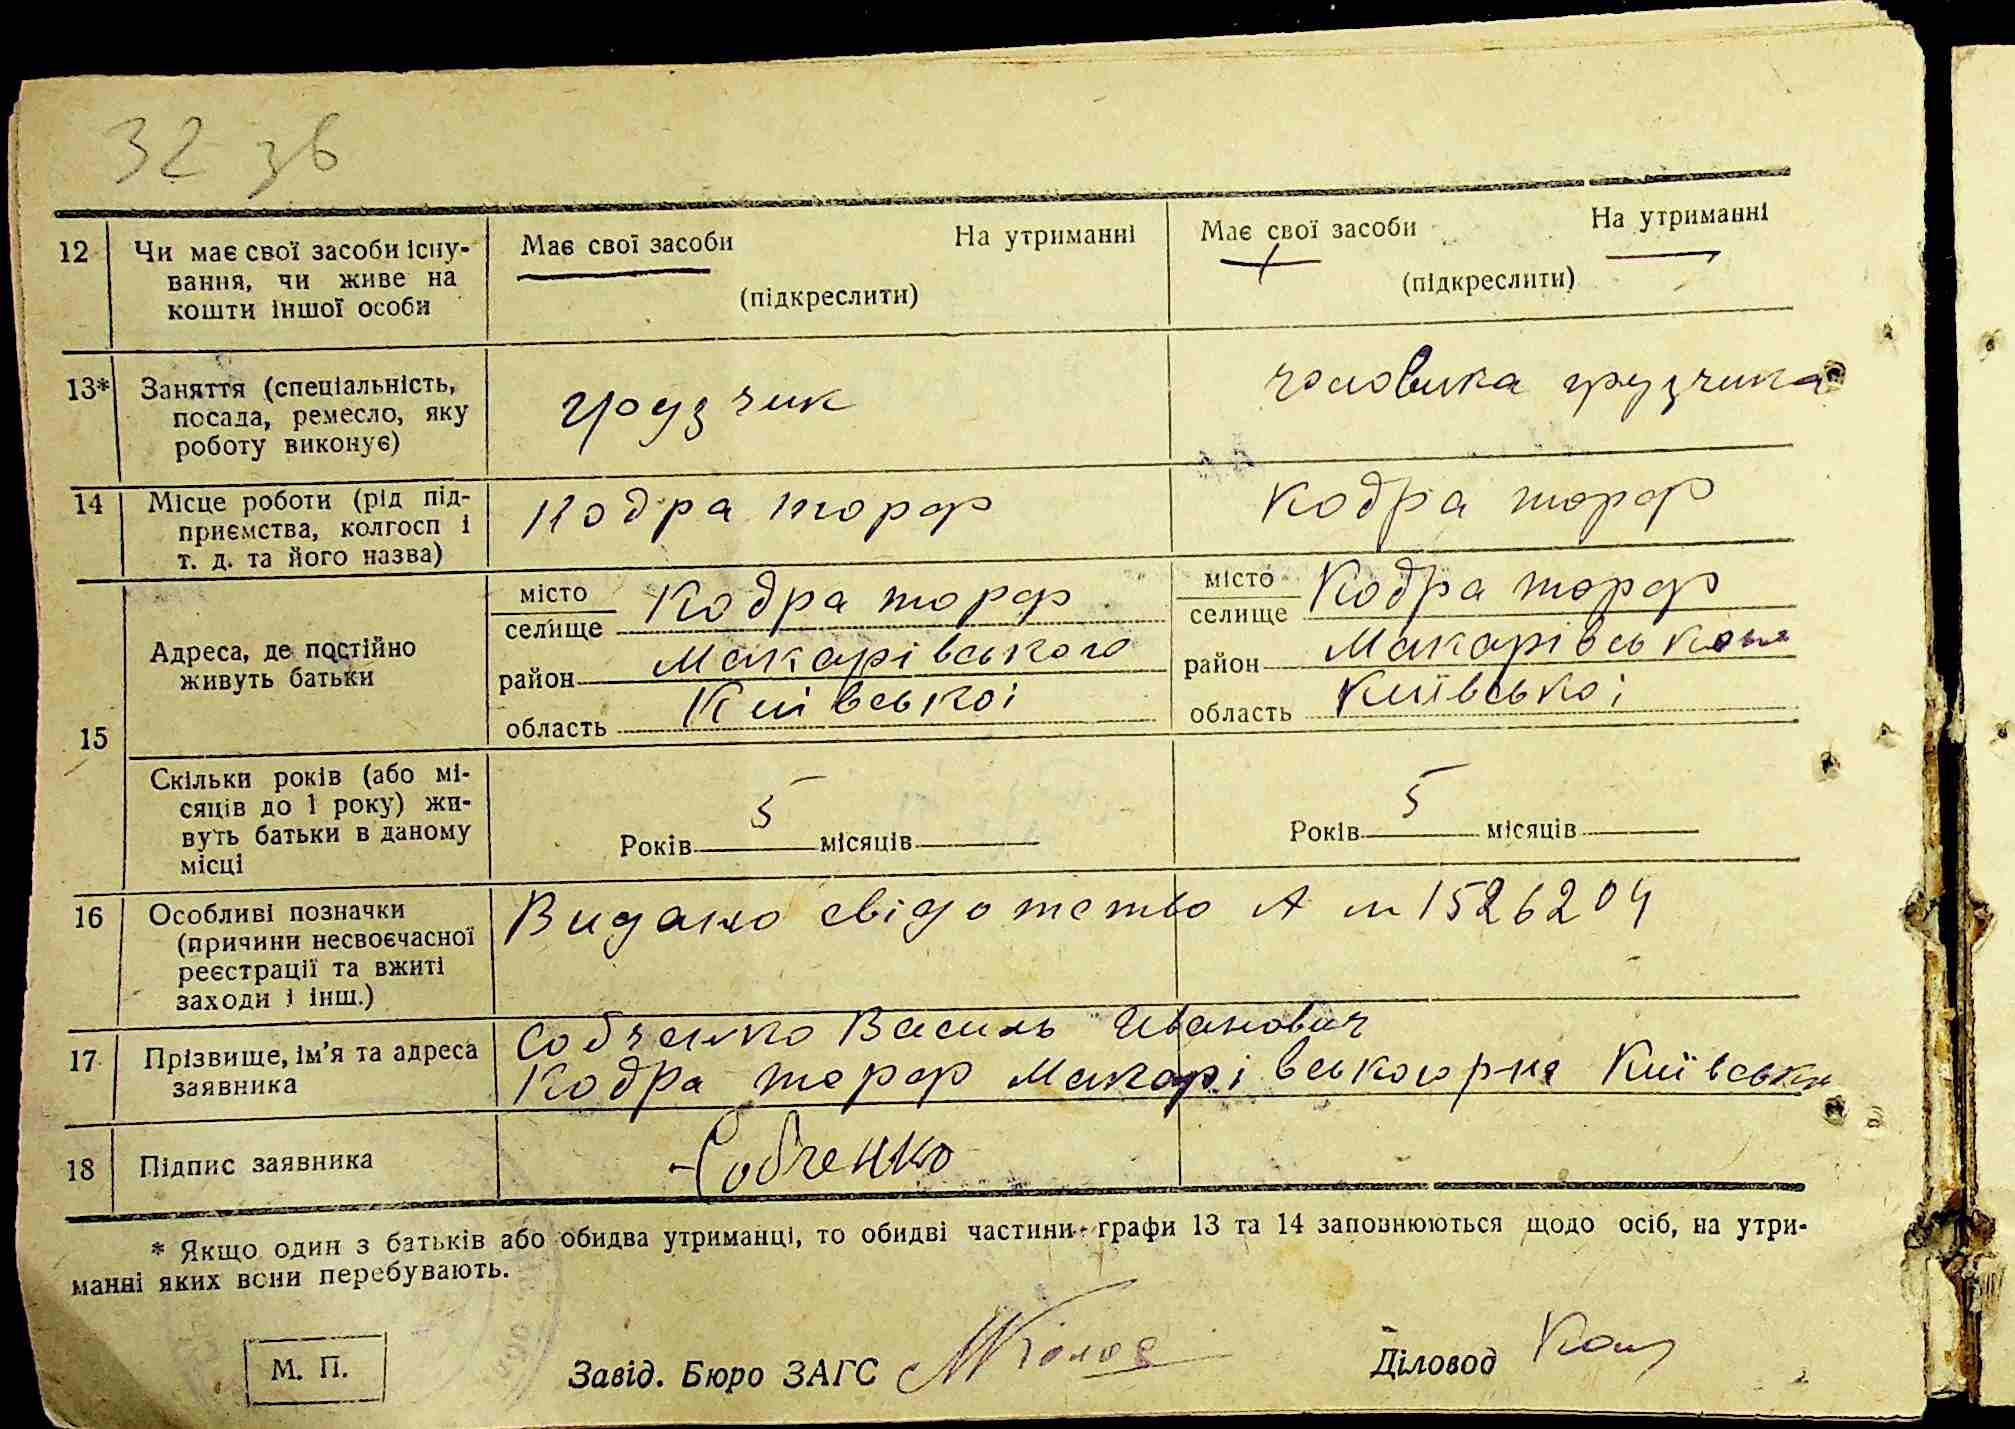 32 зв
12 Чи має свої засоби існу- Має свої засоби На утриманні Має свої засоби На утриманні
вання, чи живе на
кошти іншої особи (підкреслити) (підкреслити)
13* Заняття (спеціальність, грузчик чоловика грузчика
посада, ремесло, яку
роботу виконує)
14 Місце роботи (рід під- Кодра торф Кодра торф
приємства, колгосп і
т. д. та його назва)
15 Адреса, де постійно
живуть батьки
місто Кодра торф місто Кодра торф
селище селище
район Макарівського район Макарівського
область Київської область Київської
Скільки років (або мі-
сяців до 1 року) жи-
вуть батьки в даному
місці
Років 5 місяців Років 5 місяців
16 Особливі позначки Видано свідотство А № 1526204
(причини несвоєчасної
реєстрації та вжиті
заходи і інш.)
17 Прізвище, ім'я та адреса Собченко Василь Иванович
заявника Кодра торф Макарівського р-на Київськ
18 Підпис заявника Собченко
* Якщо один з батьків або обидва утриманці, то обидві частини графи 13 та 14 заповнюються щодо осіб, на утри-
манні яких вони перебувають.
М. П. Завід. Бюро ЗАГС Діловод